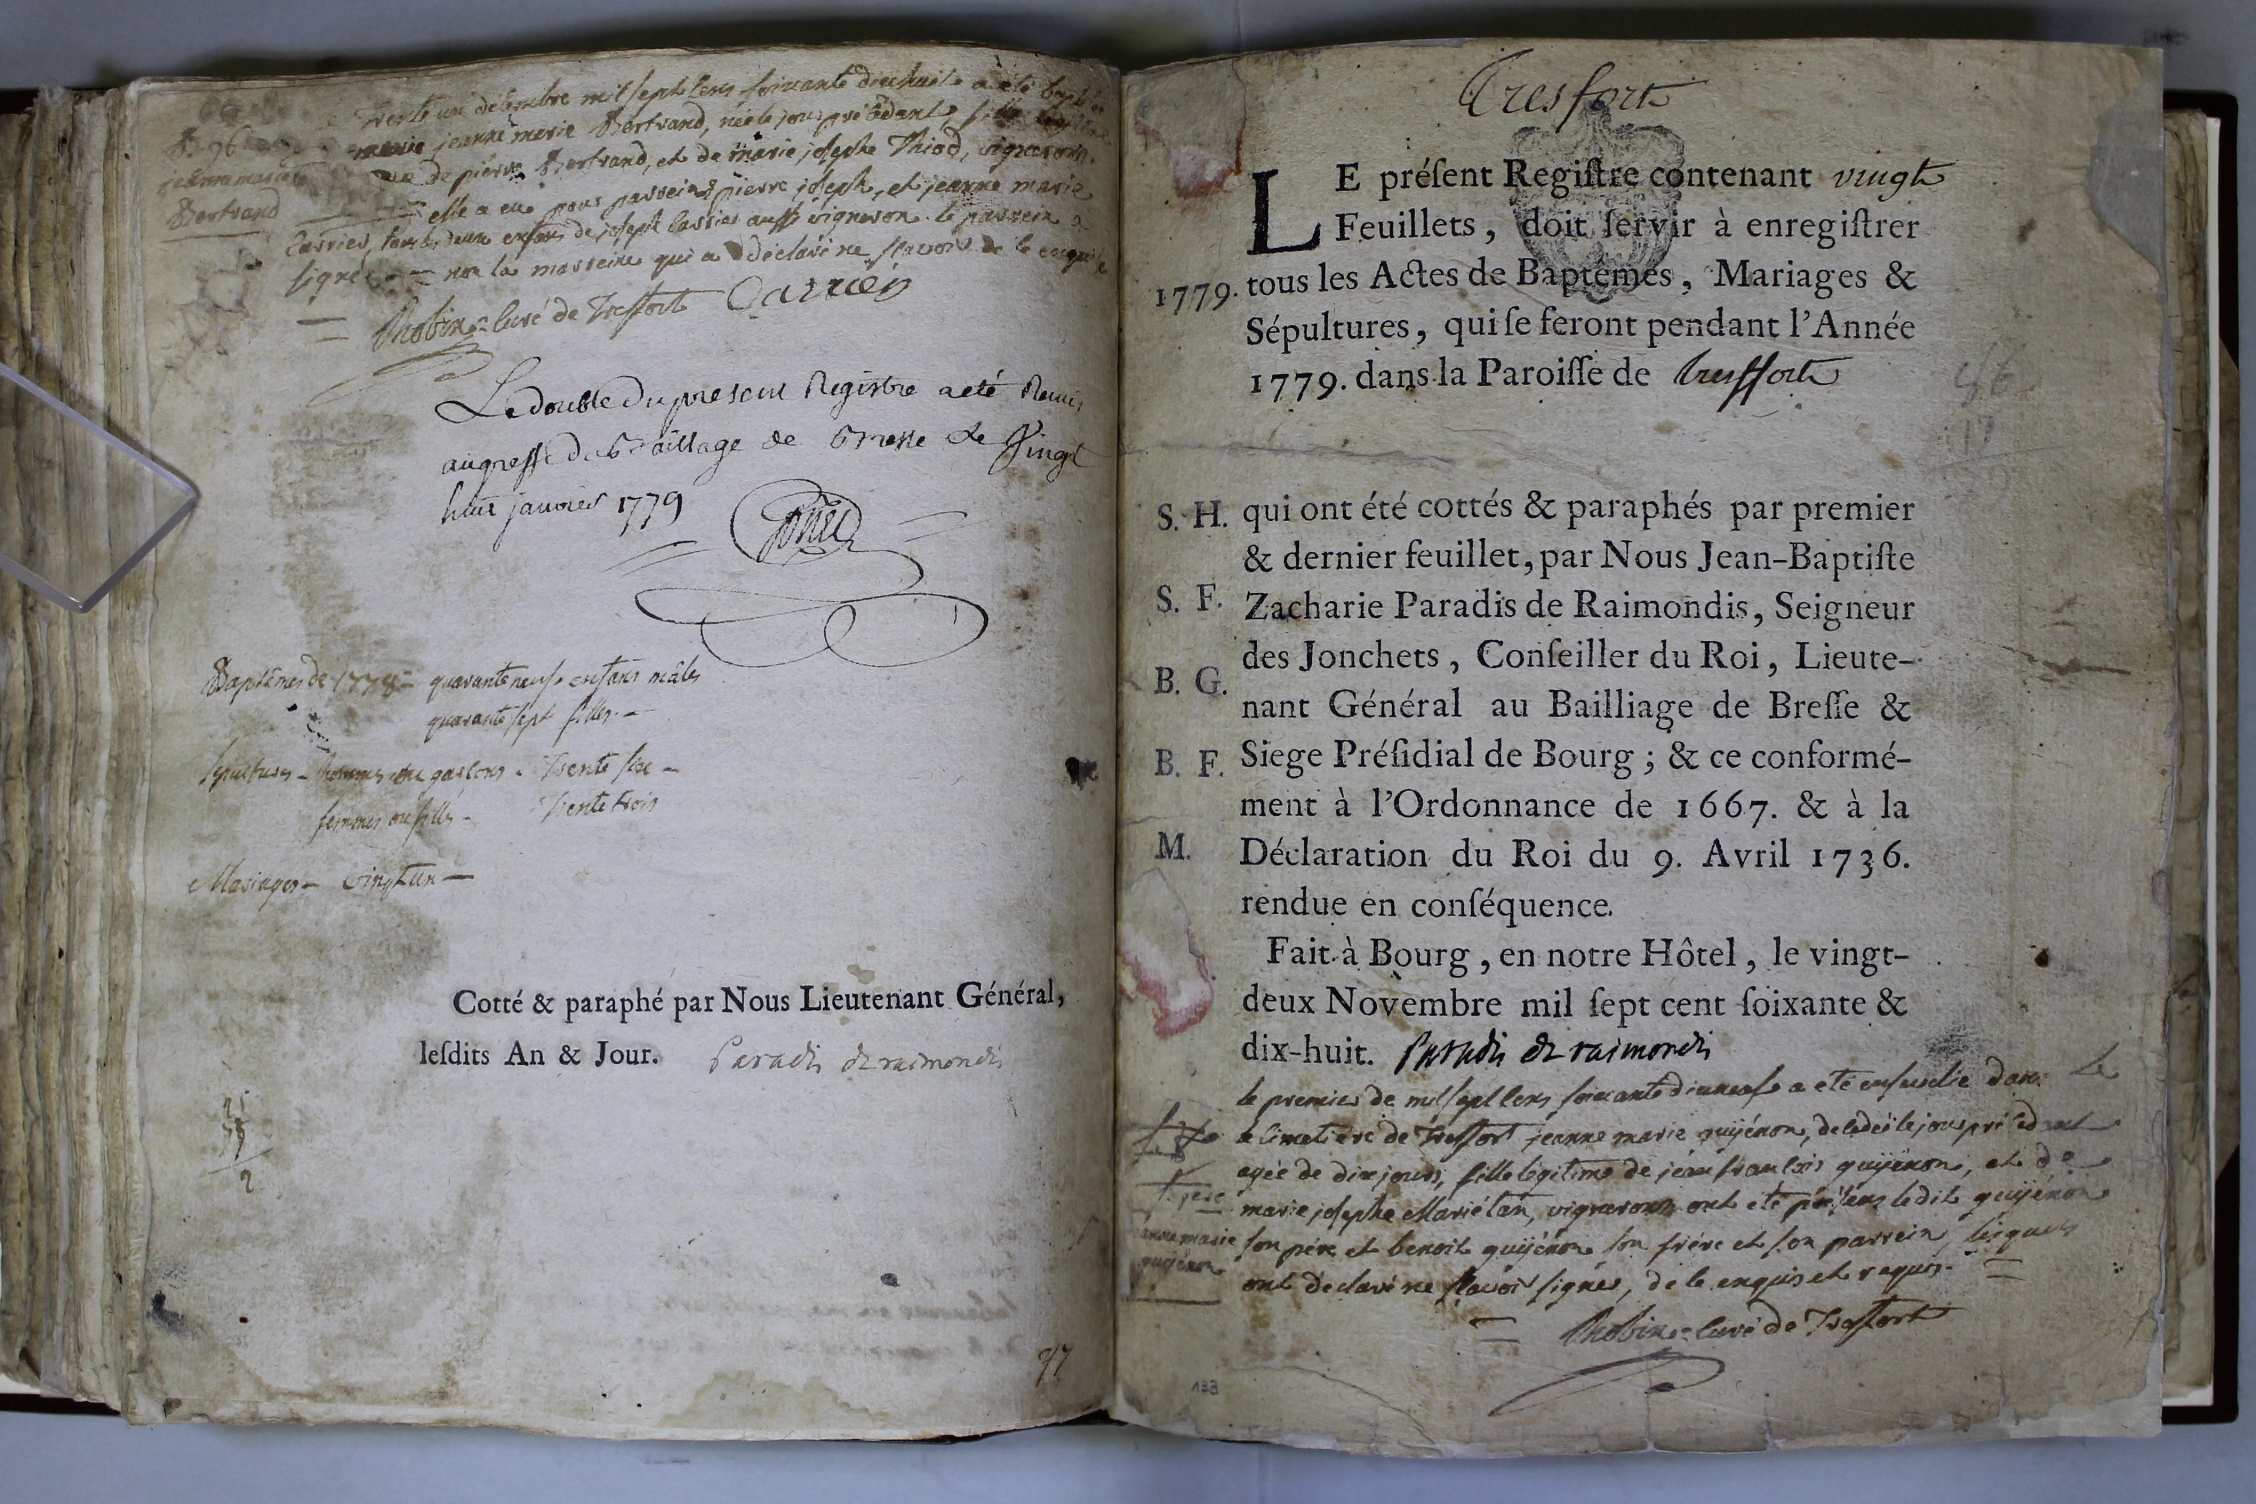 B. 96
jeanne marie
Bertrand
trente un décembre mil sept cens soixante dixhuit a été
marie jeanne marie Bertrand, née le jour précédant fille
de pierre Bertrand, et de marie josephe Thiod, vignerons.
elle a eu pour parrein pierre joseph, et jeanne marie
Carrier, tous deux enfans de joseph Carrier aussi vigneron. le parrein a
signé = non la marreine qui a déclaré ne sçavoir de le enquise
= Robin curé de Treffort Carrier
Le double du present Registre a eté Remis
au greffe du Bailliage de Bresse Le Vingt
huit janvier 1779
Baptêmes de 1778 - quarante neuf enfans mâles
quarante sept filles -
sepultures - hommes ou garçons - Trente six -
femmes ou filles - Trente trois
Mariages - vingt un -
Cotté & paraphé par Nous Lieutenant Général,
leſdits An & Jour. Paradis de raimondis
2
97
Tresfort
LE préſent Regiſtre contenant vingt
Feuillets, doit ſervir à enregiſtrer
1779. tous les Actes de Baptêmes, Mariages &
Sépultures, qui ſe feront pendant l'Année
1779. dans la Paroiſſe de Treffort
S. H. qui ont été cottés & paraphés par premier
& dernier feuillet, par Nous Jean-Baptiſte
S. F. Zacharie Paradis de Raimondis, Seigneur
des Jonchets, Conſeiller du Roi, Lieute-
B. G. nant Général au Bailliage de Breſſe &
B. F. Siege Préſidial de Bourg ; & ce conformé-
ment à l'Ordonnance de 1667. & à la
M. Déclaration du Roi du 9. Avril 1736.
rendue en conſéquence.
Fait à Bourg, en notre Hôtel, le vingt-
deux Novembre mil ſept cent ſoixante &
dix-huit. Paradis de raimondis
le premier de mil sept cens soixante dixneuf a eté ensevelie dans le
cimetiere de Treffort jeanne marie guijénon, decedée le jour précedant
agée de dix jours, fille légitime de jean françois guijénon, et de
marie josephe Mariétan, vignerons ont eté présens ledit guijénon
son pére et benoit guijénon son frére et son parrein, lesquels
ont déclaré ne sçavoir signer, de le enquis et requis. =
jeanne marie
guijénon
= Robin curé de Treffort
133